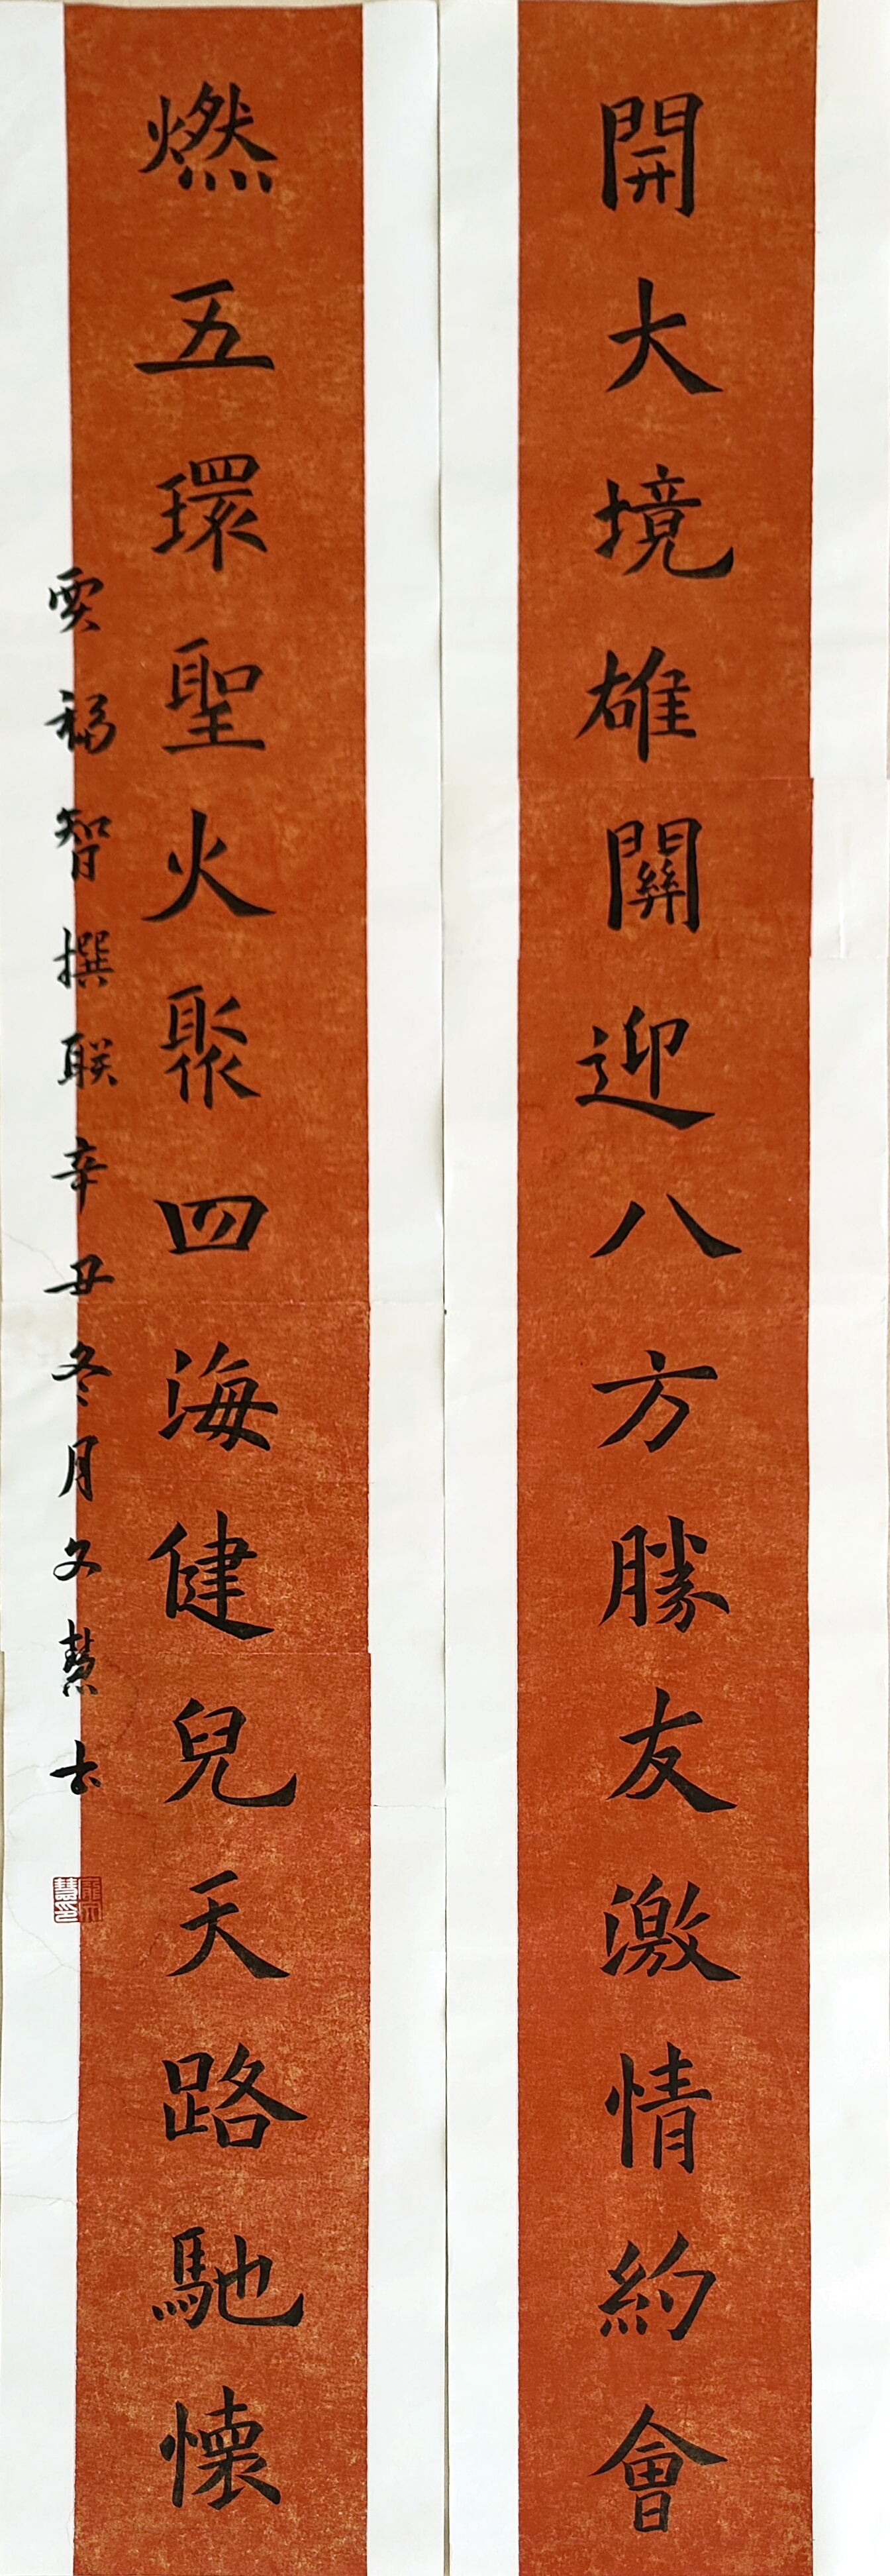 開大境雄關迎八方勝友激情約會
燃五環聖火聚四海健兒天路馳懷
賈福智撰联辛丑冬月文慧书
龐文慧印